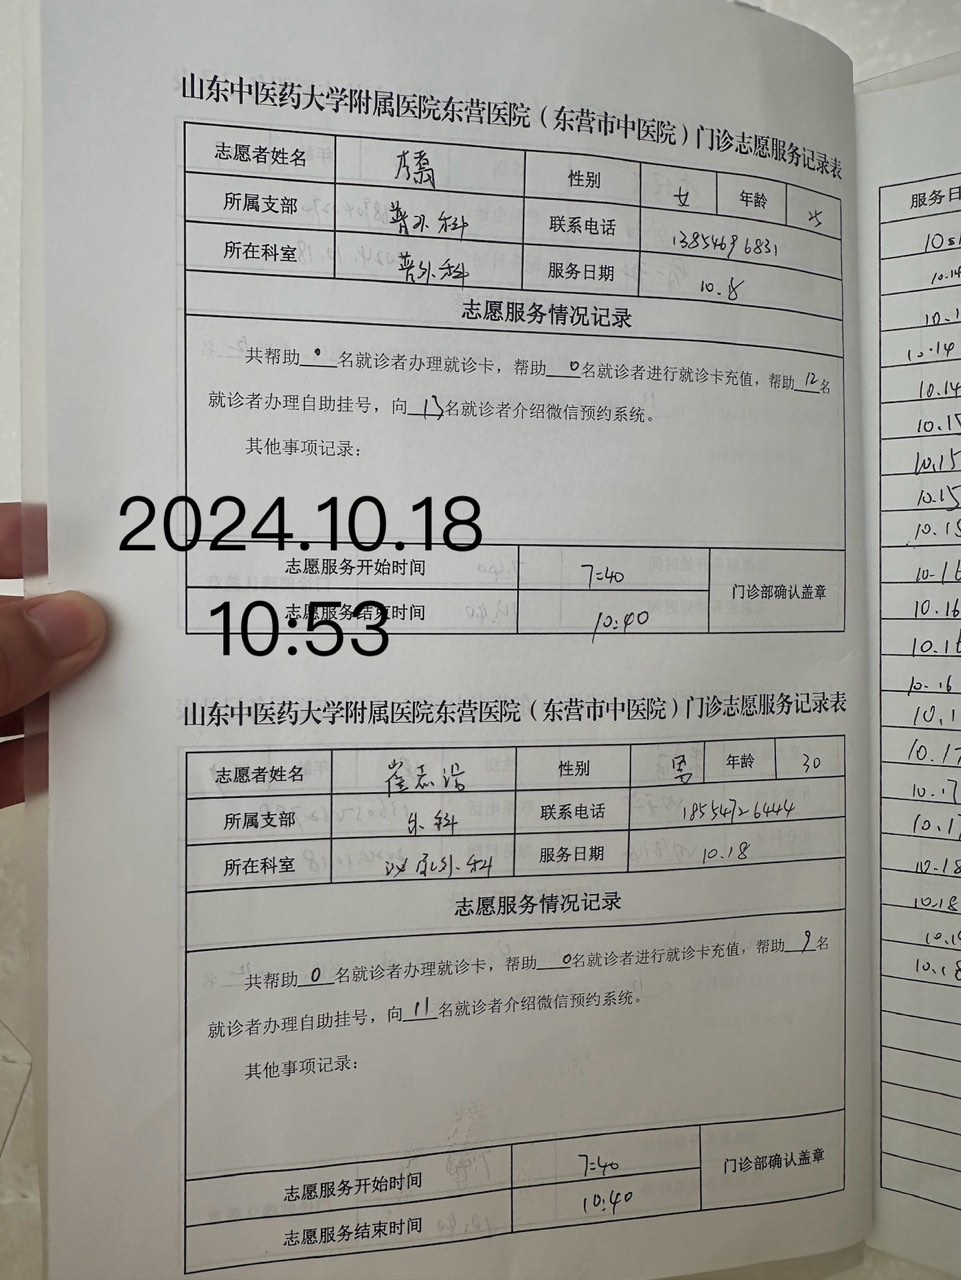 山东中医药大学附属医院东营医院（东营市中医院）门诊志愿服务记录表
志愿者姓名 性别 女 年龄
所属支部 普外科 联系电话 13854696831
所在科室 普外科 服务日期 10.8
志愿服务情况记录
共帮助 0 名就诊者办理就诊卡，帮助 0 名就诊者进行就诊卡充值，帮助 12 名
就诊者办理自助挂号，向 13 名就诊者介绍微信预约系统。
其他事项记录：
2024.10.18
志愿服务开始时间 7:40 门诊部确认盖章
志愿服务结束时间 10:40
10:53
山东中医药大学附属医院东营医院（东营市中医院）门诊志愿服务记录表
志愿者姓名 崔志浩 性别 男 年龄 30
所属支部 外科 联系电话 18554726444
所在科室 泌尿外科 服务日期 10.18
志愿服务情况记录
共帮助 0 名就诊者办理就诊卡，帮助 0 名就诊者进行就诊卡充值，帮助 9 名
就诊者办理自助挂号，向 11 名就诊者介绍微信预约系统。
其他事项记录：
志愿服务开始时间 7:40 门诊部确认盖章
志愿服务结束时间 10:40
服务日
10.14
10.14
10.14
10.15
10.15
10.15
10.16
10.16
10.16
10.17
10.17
10.18
10.18
10.18